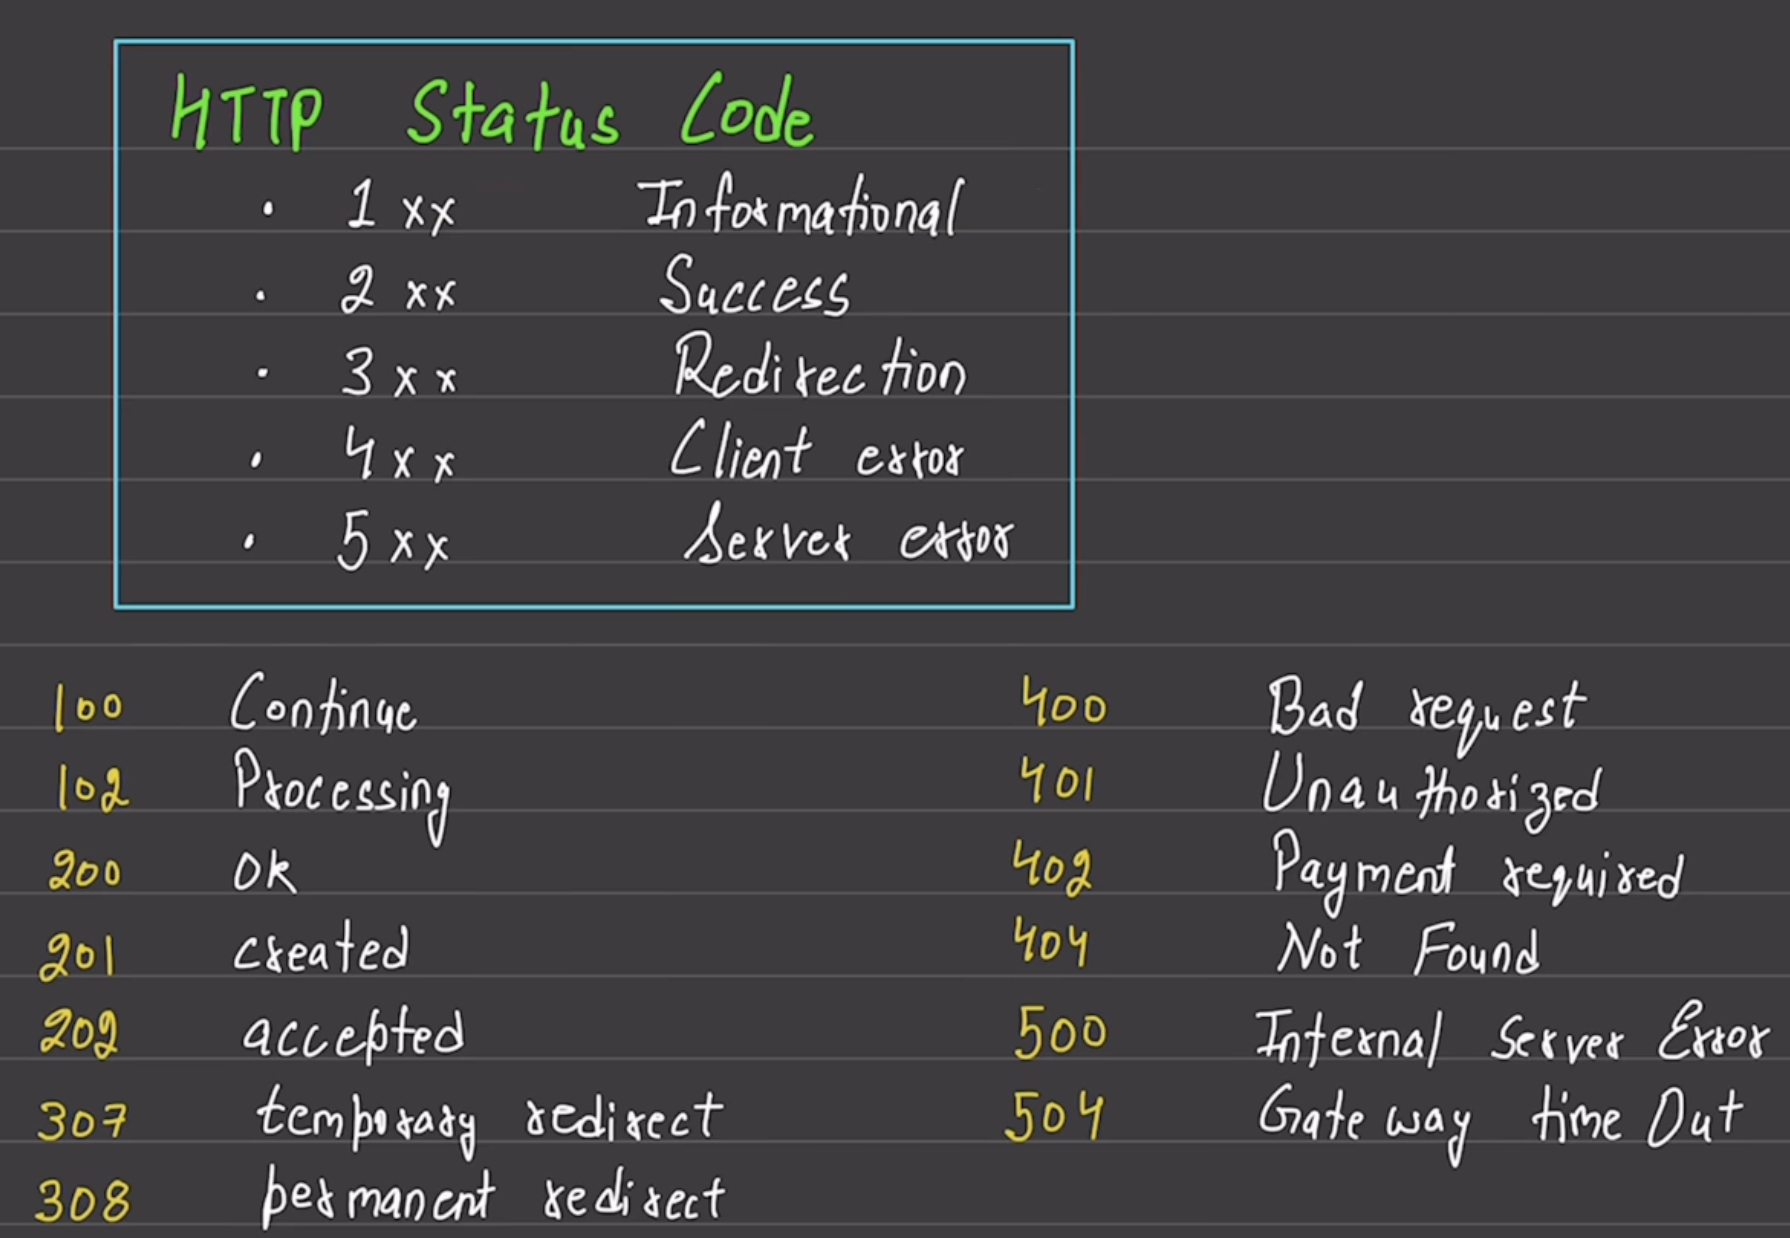 HTTP Status Code
· 1xx Informational
· 2xx Success
· 3xx Redirection
· 4xx Client error
· 5xx Server error
100 Continue
102 Processing
200 ok
201 created
202 accepted
307 temporary redirect
308 permanent redirect
400 Bad request
401 Unauthorized
402 Payment required
404 Not Found
500 Internal Server Error
504 Gate way time Out